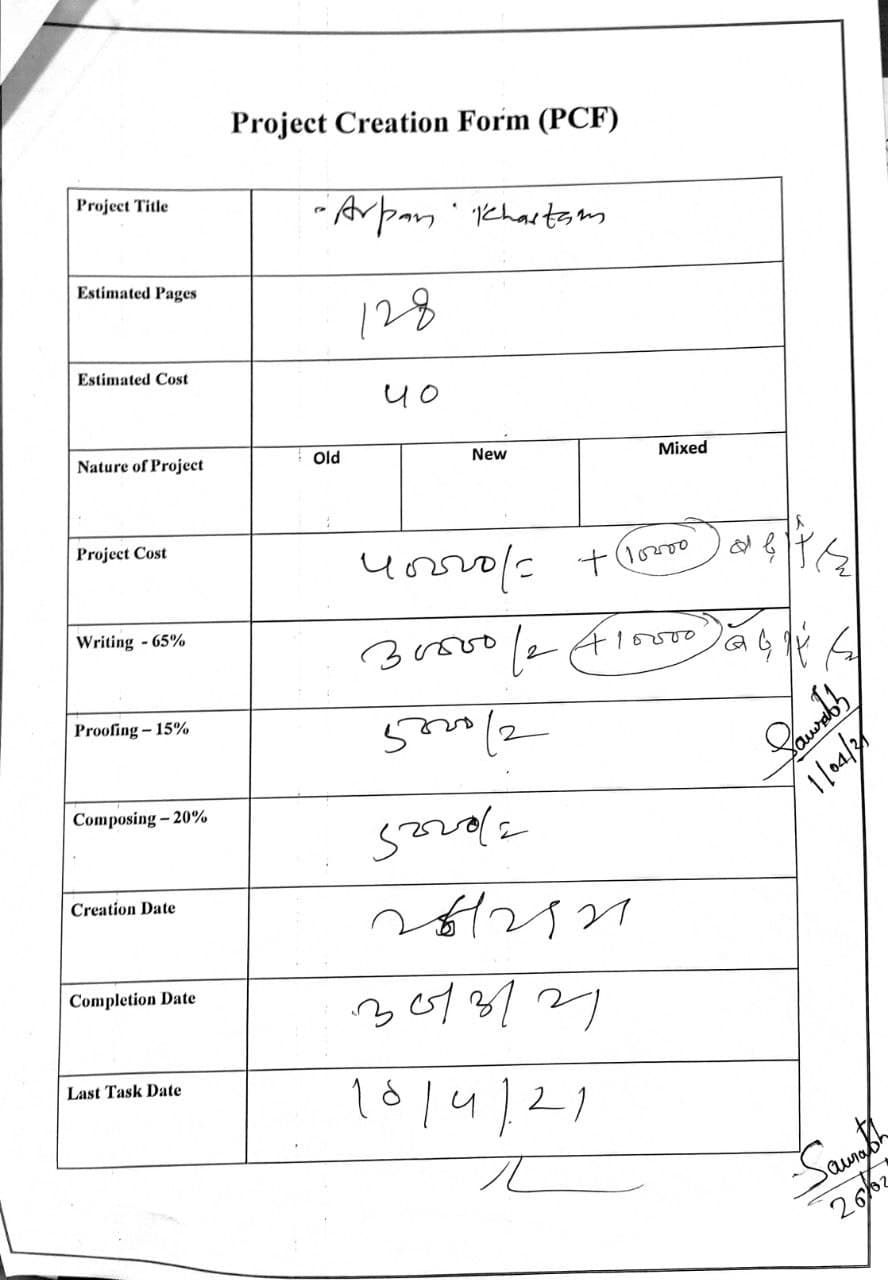 Project Creation Form (PCF)
Project Title - Arpan Khartam
Estimated Pages 128
Estimated Cost 40
Nature of Project Old New Mixed
Project Cost 40000/= + 10000
Writing - 65% 30000/= + 10000
Proofing – 15% 5000/=
Composing – 20% 5000/=
Saurabh
1/04/21
Creation Date
Completion Date 30/3/21
Last Task Date 10/4/21
Saurabh
26/02